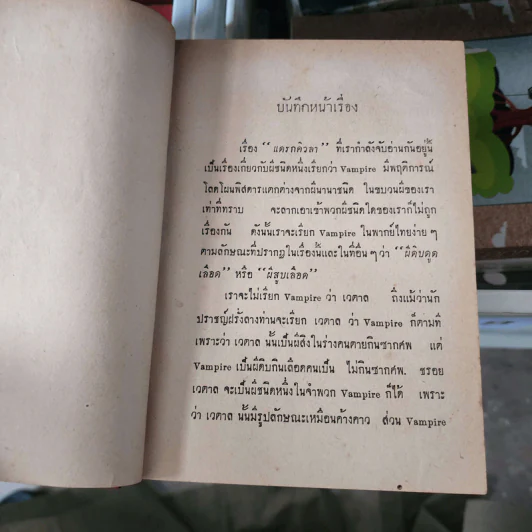 บันทึกหน้าเรื่อง
เรื่อง “แดรกคิวลา” ที่เรากำลังจับอ่านกันอยู่นี้
เป็นเรื่องเกี่ยวกับผีชนิดหนึ่งเรียกว่า Vampire มีพฤติการณ์
โลดโผนพิสดารแตกต่างจากผีนานาชนิด ในขบวนผีของเรา
เท่าที่ทราบ จะลากเอาเข้าพวกผีชนิดใดของเราก็ไม่ถูก
เรื่องกัน ดังนั้นเราจะเรียก Vampire ในพากย์ไทยง่าย ๆ
ตามลักษณะที่ปรากฏในเรื่องนี้และในที่อื่น ๆ ว่า “ผีดิบดูด
เลือด” หรือ “ผีสูบเลือด”
เราจะไม่เรียก Vampire ว่า เวตาล ถึงแม้ว่านัก
ปราชญ์ฝรั่งลางท่านจะเรียก เวตาล ว่า Vampire ก็ตามที
เพราะว่า เวตาล นั้นเป็นผีสิงในร่างคนตายกินซากศพ แต่
Vampire เป็นผีดิบกินเลือดคนเป็น ไม่กินซากศพ. ชรอย
เวตาล จะเป็นผีชนิดหนึ่งในจำพวก Vampire ก็ได้ เพราะ
ว่า เวตาล นั้นมีรูปลักษณะเหมือนค้างคาว ส่วน Vampire